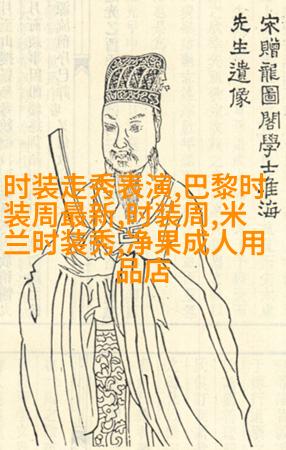 宋贈龍圖閣學士淮海
先生遺像
时装走秀表演,巴黎时
装周最新,时装周,米
兰时装秀,净果成人用
品店